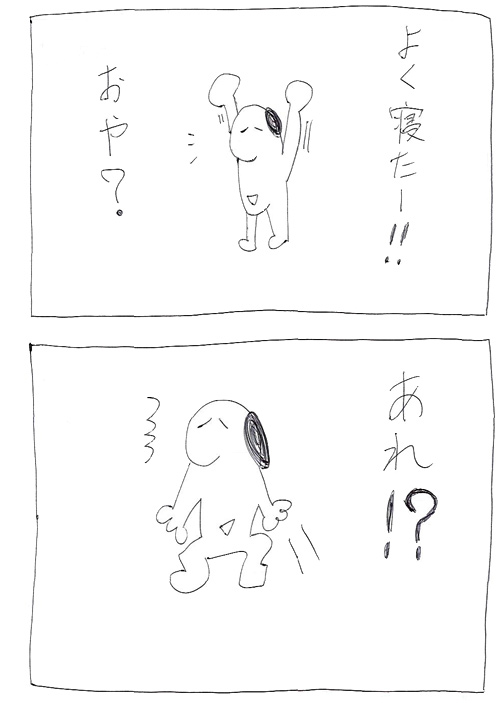 よく寝たー!!
おや?
あれ!?